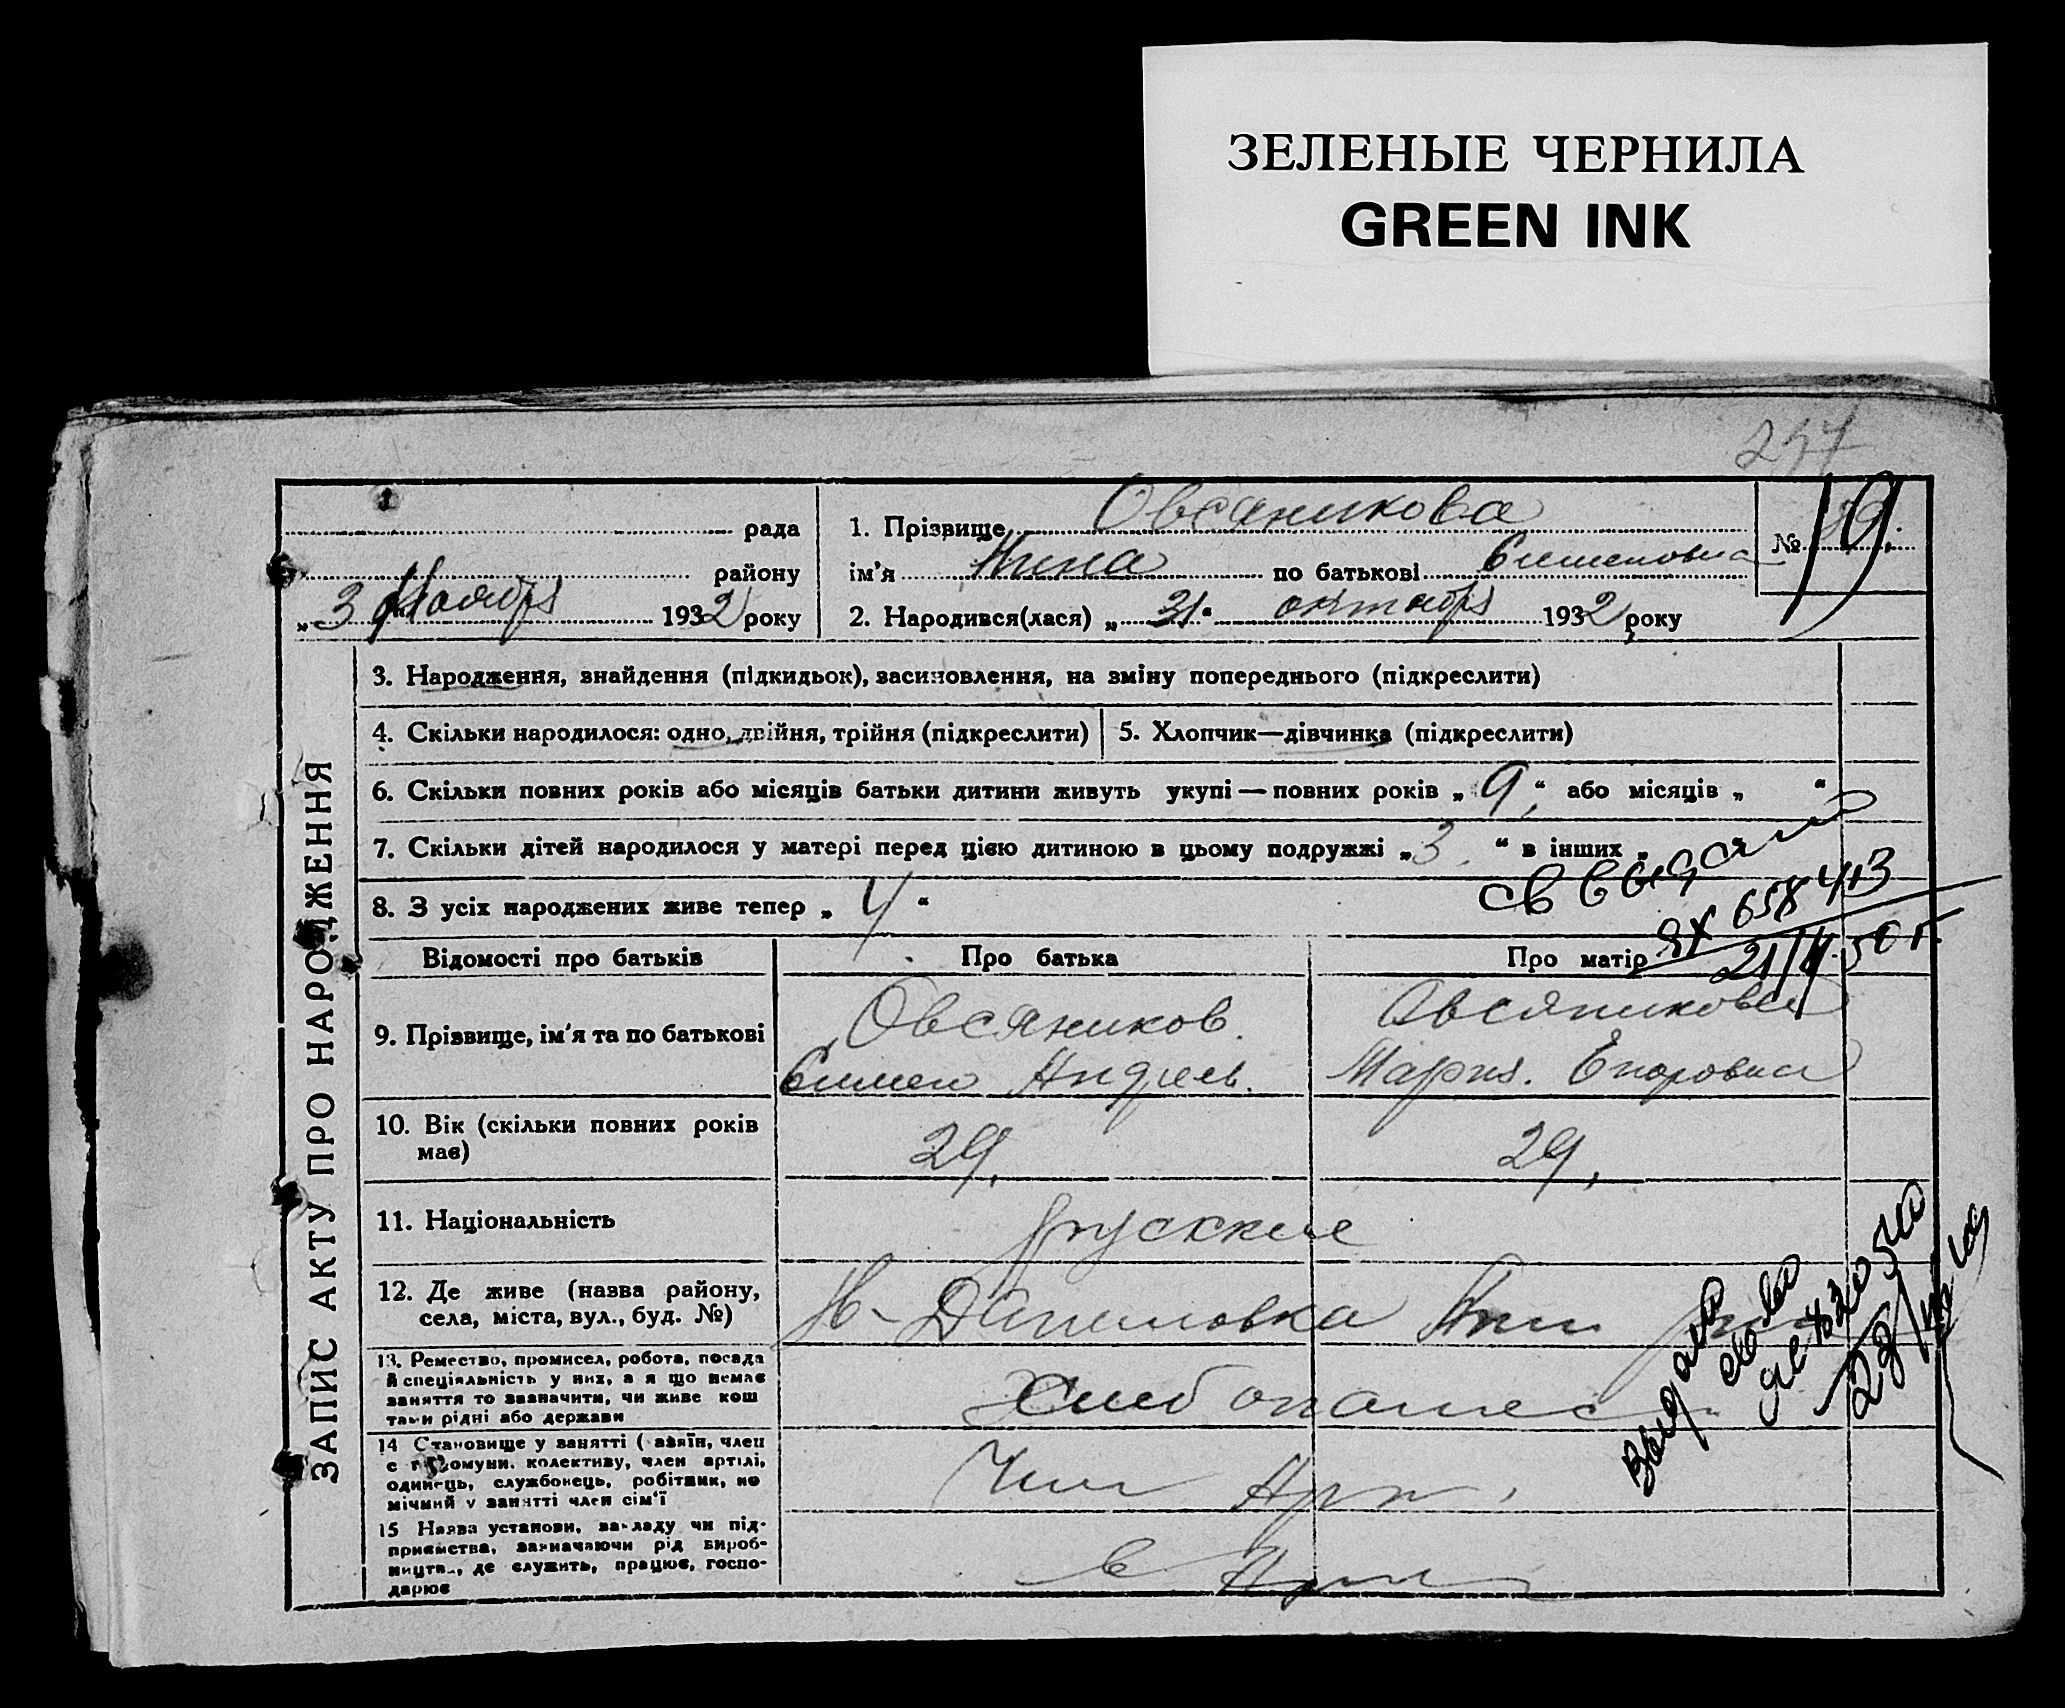 ЗЕЛЕНЫЕ ЧЕРНИЛА
GREEN INK
ЗАПИС АКТУ ПРО НАРОДЖЕННЯ
рада
району
„ 3 Ноября 1932 року
1. Прізвище Овсяникова
ім'я Нина по батькові Сименовна
2. Народився(лася) „ 31 " октября 1932 року
№ 19.
3. Народження, знайдення (підкидьок), засиновлення, на зміну попереднього (підкреслити)
4. Скільки народилося: одно, двійня, трійня (підкреслити)
5. Хлопчик—дівчинка (підкреслити)
6. Скільки повних років або місяців батьки дитини живуть укупі — повних років „ 9 “ або місяців „ “
7. Скільки дітей народилося у матері перед цією дитиною в цьому подружжі „ 3 “ в інших „
8. З усіх народжених живе тепер „ 4 “
ЯХ 658413
50 г.
Відомості про батьків
Про батька
Про матір
9. Прізвище, ім'я та по батькові
Овсяников
Симен Андреев.
Овсяникова
Мария. Егоровна
10. Вік (скільки повних років має)
29.
29.
11. Національність
русские
12. Де живе (назва району, села, міста, вул., буд. №)
Н-Даниловка
13. Ремество, промисел, робота, посада
й спеціяльність у них, а я що немає
заняття то зазначити, чи живе кош
тами рідні або держави
Хлебопашес
14 Становище у занятті (хазяїн, член
с г комуни. колективу, член артілі,
одинець, службонець, робітник, по
мічний у занятті член сім'ї
Член Арт.
15 Назва установи, закладу чи під-
приємства, зазначаючи рід вироб-
ництв., де служить, працює, госпо-
дарює
в Арт